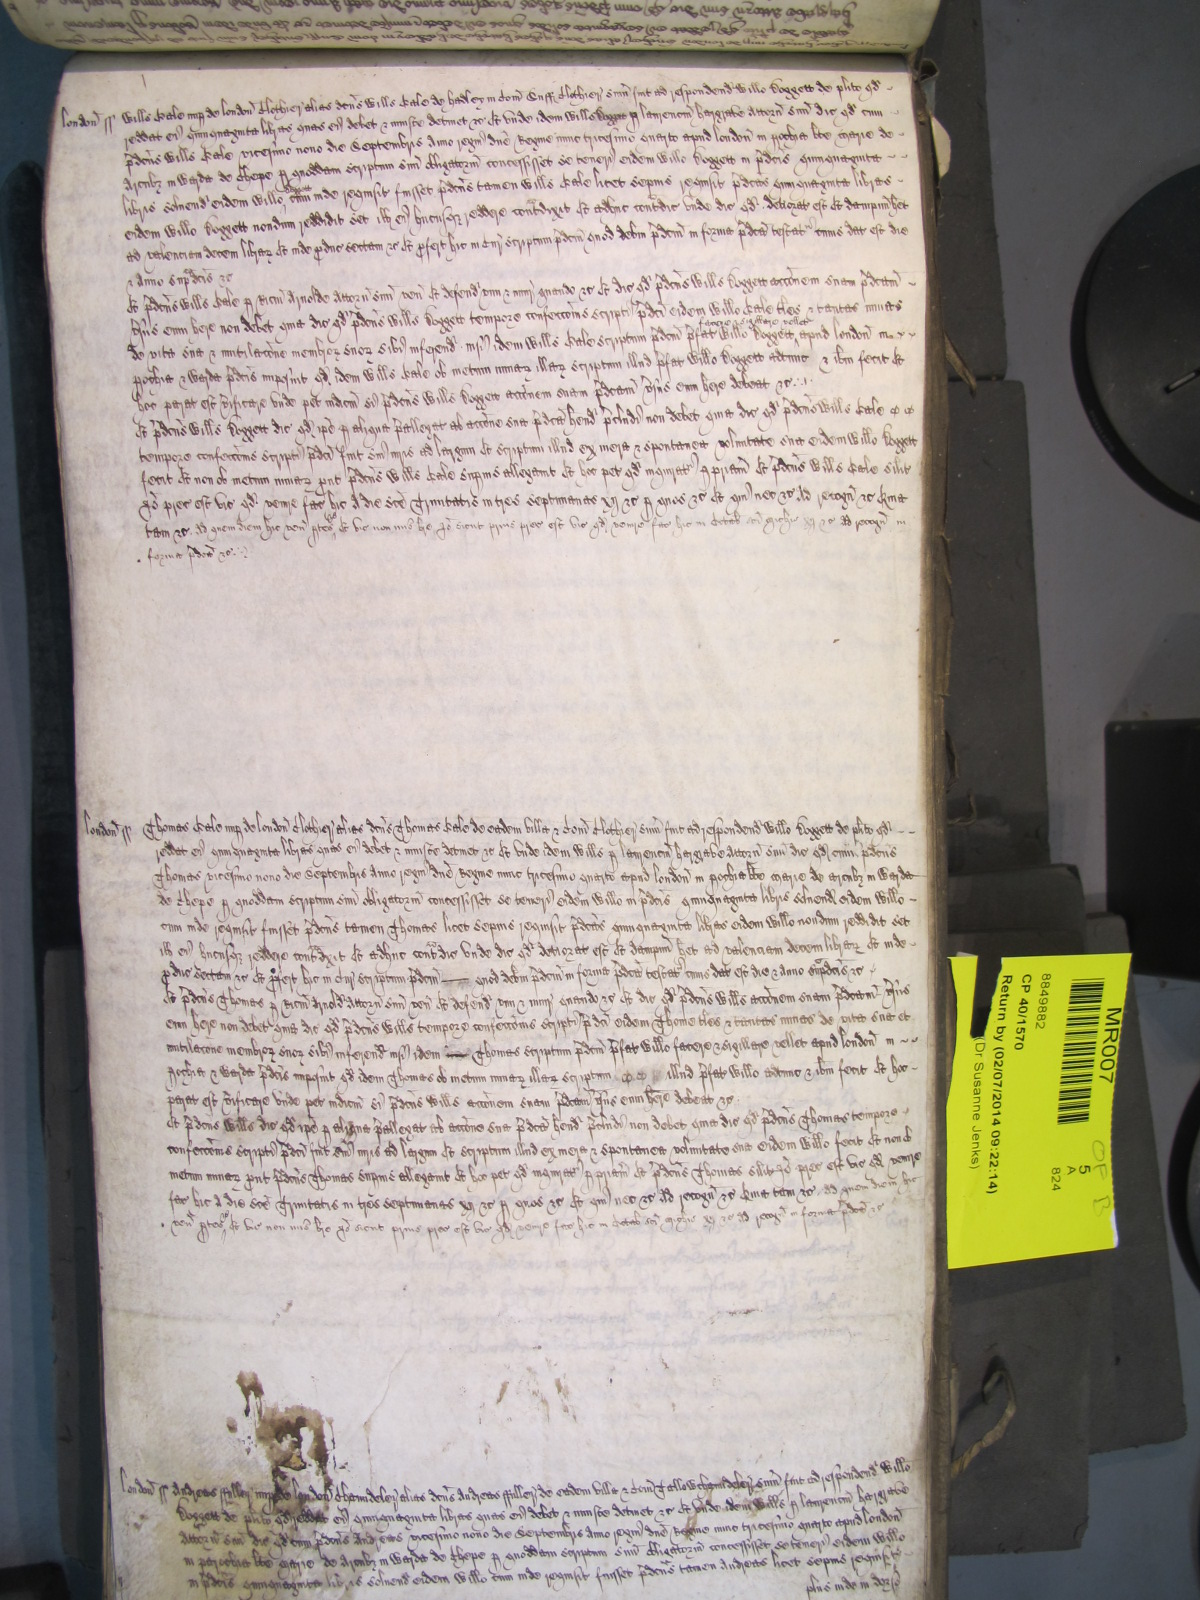 london ss Wills Cale nup de london Clothier alias dcus Wills Cale de hadley in Com Suff Clothier sum fuit ad respondend Willo Doggett de plito qd
reddat ei quinquaginta libras quas ei debet & iniuste detinet &c Et unde idem Wills Doggett p laurenciu hargrave attorn suu dic qd cum
pdcus Wills Cale vicesimo nono die Septembris Anno regni dne Regine nunc tricesimo quarto apud london in pochia bte marie de
Arcubz in Warda de Chepe p quoddam scriptum suu obligatoriu concessisset se teneri eidem Willo Doggett in pdcis quinquaginta
libris solvend eidem Willo Doggett cum inde requisit fuisset pdcus tamen Wills Cale licet sepius requisit pdcas quinquaginta libras
eidem Willo Doggett nondum reddidit set ill ei hucusqz reddere contradixit Et adhuc contradic unde dic qd deteriorat est Et dampnu het
ad valenciam decem librarz Et inde produc sectam &c Et profert hic in Cur scriptum pdcm quod debm pdcm in forma pdca testat cuius dat est die
& Anno supradcis &c
Et pdcus Wills Cale p Ricm Arnolde attorn suu ven Et defend vim & iniur quando &c Et dic qd pdcus Wills Doggett accoem suam pdcam
vsus eum here non debet quia dic qd pdcus Wills Doggett tempore confeccois scripti pdci eidem Willo Cale tles & tantas minas
de vita sua & mutilacoe membrorz suorz sibi inferend nisi idem Wills Cale scriptum pdcm pfat Willo Doggett facere & sigillare vellet apud london in
pochia & warda pdcis imposuit qd idem Wills Cale ob metum minarz illarz scriptum illud pfat Willo Doggett adtunc & ibm fecit Et
hoc parat est verificare unde pet iudiciu si pdcus Wills Doggett accoem suam pdcam vsus eum here debeat &c
Et pdcus Wills Doggett dic qd ipe p aliqua pallegat ab accoe sua pdca hend pcludi non debet quia dic qd pdcus Wills Cale
tempore confeccois scripti pdci fuit sui iuris ad largum Et scriptum illud ex mera & spontanea voluntate sua eidem Willo Doggett
fecit Et non ob metum minarz put pdcus Wills Cale supius allegavit Et hoc pet qd inquirat p priam Et pdcus Wills Cale silit
Io prec est vic qd venire fac hic A die Sce Trinitatis in tres septimanas xij &c p quos &c Et qui nec &c Ad recogn &c Quia
tam &c Ad quem diem hic ven ptes Et vic non mis bre Io sicut prius prec est vic qd venire fac hic in Octab sci michis xij &c Ad recogn in
forma pdca &c
london ss Thomas Cale nup de london Clothier alias dcus Thomas Cale de eadem villa & Com Clothier sum fuit ad respondend Willo Doggett de plito qd
reddat ei quinquaginta libras quas ei debet & iniuste detinet &c Et unde idem Wills p laurenciu hargrave attorn suu dic qd cum pdcus
Thomas vicesimo nono die Septembris Anno regni dne Regine nunc tricesimo quarto apud london in pochia bte marie de Arcubz in Warda
de Chepe p quoddam scriptum suu obligatoriu concessisset se teneri eidem Willo in pdcis quinquaginta libris solvend eidem Willo
cum inde requisit fuisset pdcus tamen Thomas licet sepius requisit pdcas quinquaginta libras eidem Willo nondum reddidit set
ill ei hucusqz reddere contradixit Et adhuc contradic unde dic qd deteriorat est Et dampnu het ad valenciam decem librarz Et inde
produc sectam &c Et profert hic in Cur scriptum pdcm quod debm pdcm in forma pdca testat cuius dat est die & anno supradcis &c
Et pdcus Thomas p Ricm Arnold attorn suu ven Et defend vim & iniur quando &c Et dic qd pdcus Wills accoem suam pdcam vsus
eum here non debet quia dic qd pdcus Wills tempore confeccois scripti pdci eidem Thome tles & tantas minas de vita sua et
mutilacoe membrorz suorz sibi inferend nisi idem Thomas scriptum pdcm pfat Willo facere & sigillare vellet apud london in
pochia & warda pdcis imposuit qd idem Thomas ob metum minarz illarz scriptum illud pfat Willo adtunc & ibm fecit Et hoc
parat est verificare unde pet iudiciu si pdcus Wills accoem suam pdcam vsus eum here debeat &c
Et pdcus Wills dic qd ipe p aliqua pallegat ab accoe sua pdca hend pcludi non debet quia dic qd pdcus Thomas tempore
confeccois scripti pdci fuit sui iuris ad largum Et scriptum illud ex mera & spontanea voluntate sua eidem Willo fecit Et non ob
metum minarz put pdcus Thomas supius allegavit Et hoc pet qd inquirat p priam Et pdcus Thomas silit Io prec est vic qd venire
fac hic A die Sce Trinitatis in tres septimanas xij &c p quos &c Et qui nec &c Ad recogn &c Quia tam &c Ad quem diem hic
ven ptes Et vic non mis bre Io sicut prius prec est vic qd venire fac hic in Octab sci michis xij &c Ad recogn in forma pdca &c
london ss Andreas ffuller nup de london Chaundeler alias dcus Andreas ffuller de eadem villa & Com Tallowchaundeler sum fuit ad respondend Willo
Doggett de plito qd reddat ei quinquaginta libras quas ei debet & iniuste detinet &c Et unde idem Wills p laurenciu hargrave
attorn suu dic qd cum pdcus Andreas vicesimo nono die Septembris Anno regni dne Regine nunc tricesimo quarto apud london
in parochia bte marie de Arcubz in Warda de Chepe p quoddam scriptum suu obligatoriu concessisset se teneri eidem Willo
in pdcis quinquaginta libris solvend eidem Willo cum inde requisit fuisset pdcus tamen Andreas licet sepius requisit
plus inde in dorso
MR007
8849882
CP 40/1570
Return by (02/07/2014 09:22:14)
Dr Susanne Jenks)
5
A
824
OF B